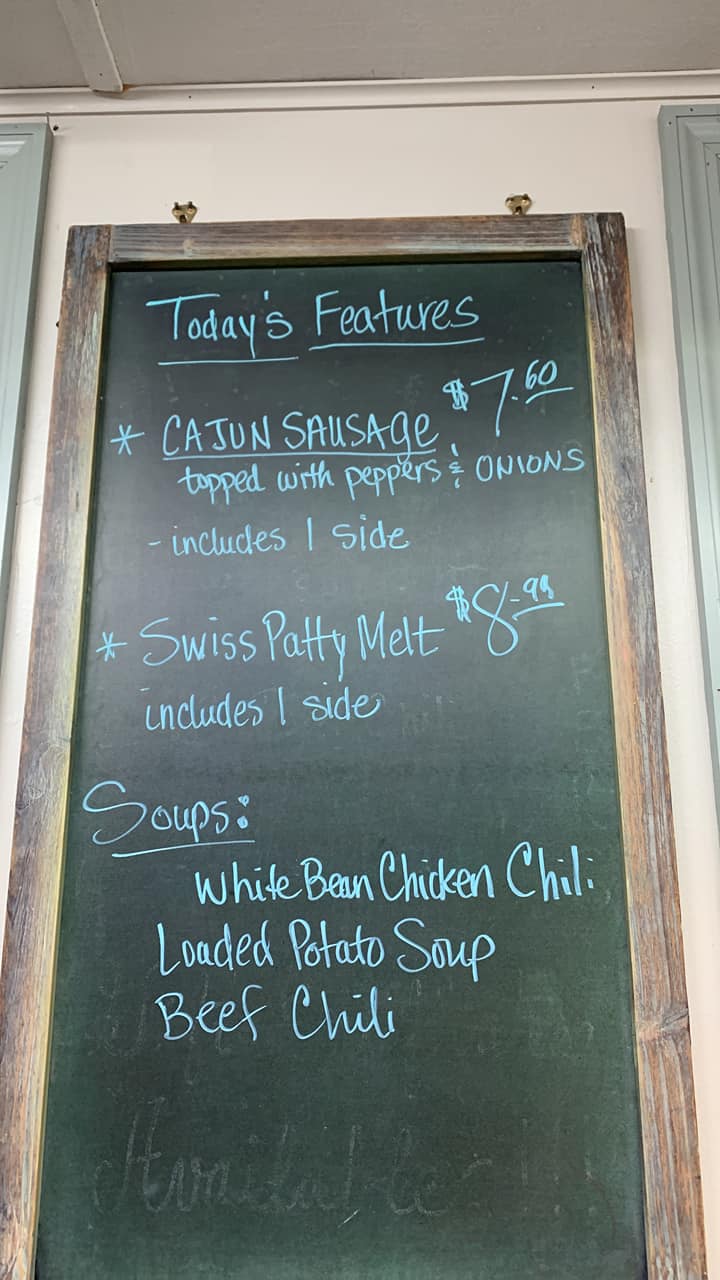 Today's Features
* CAJUN SAUSAge $7.60
topped with peppers & ONIONS
- includes 1 side
* Swiss Patty Melt $8.99
includes 1 side
Soups:
White Bean Chicken Chili
Loaded Potato Soup
Beef Chili
Available